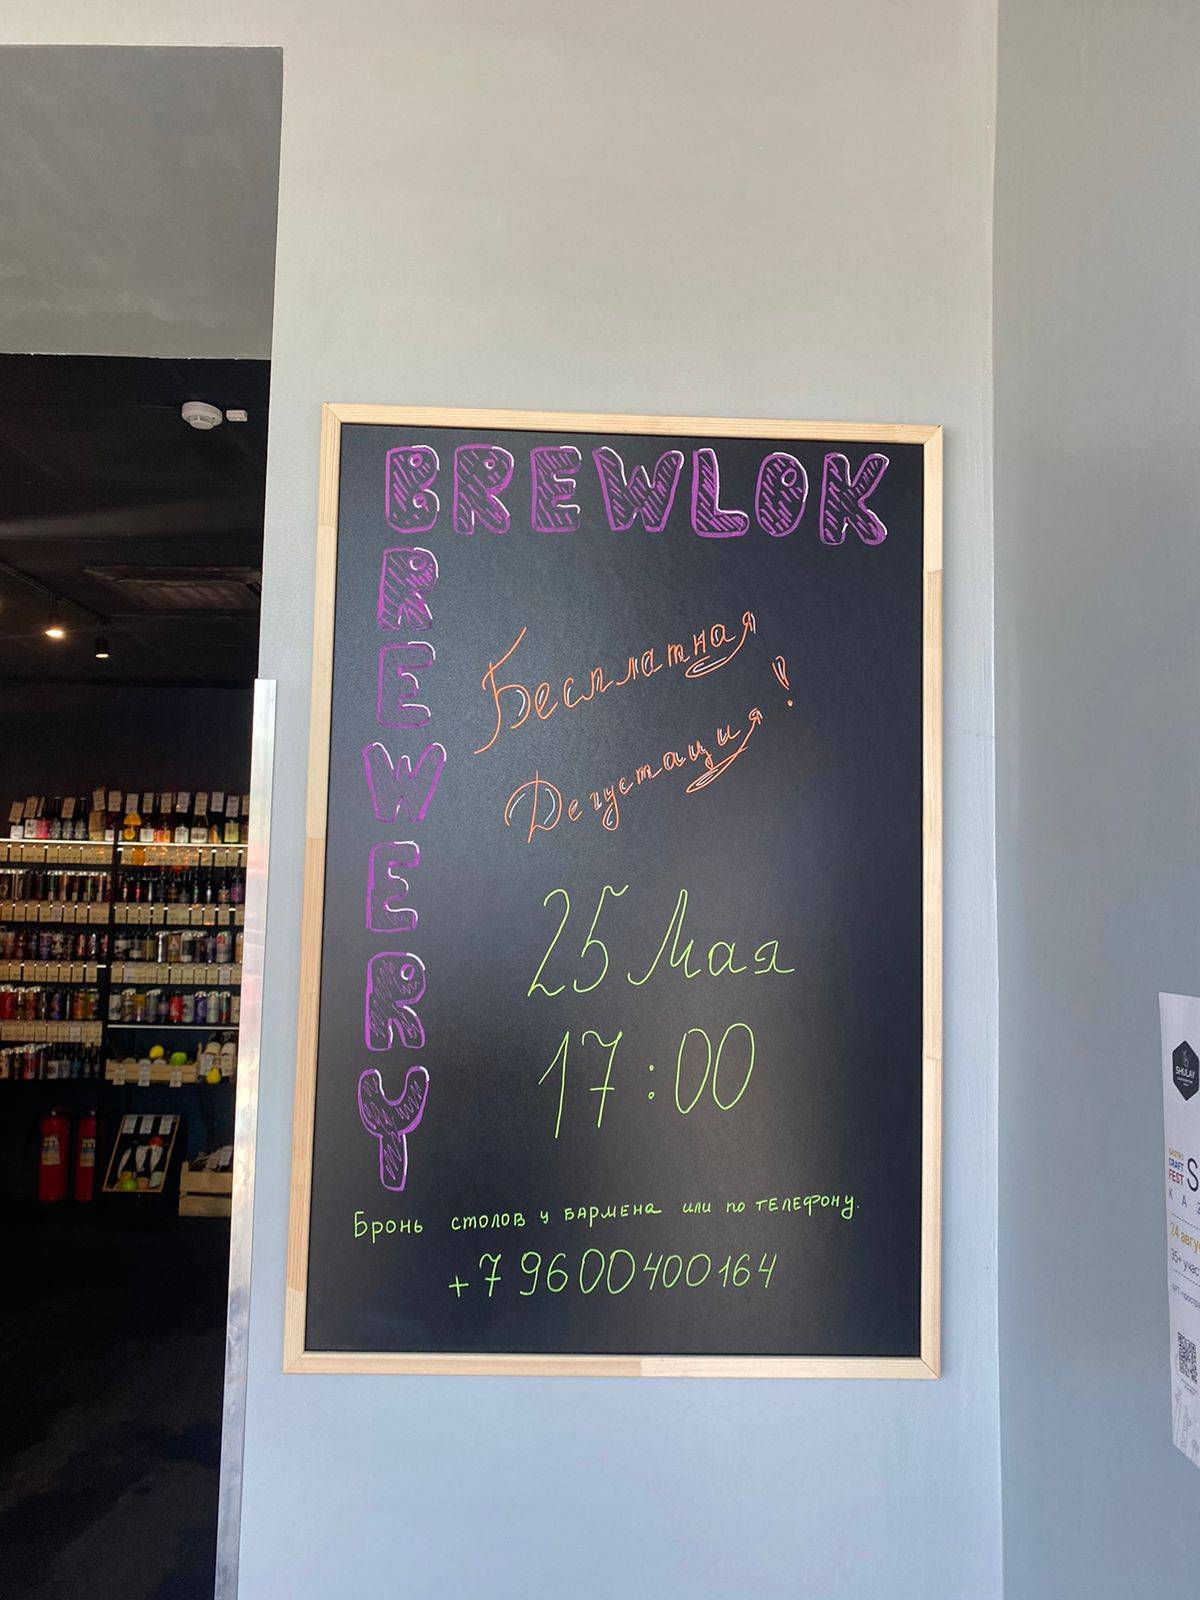 BREWLOK
BREWERY
Бесплатная
Дегустация!
25 Мая
17:00
Бронь столов у бармена или по телефону.
+79600400164
SHULAY
GASTRO
CRAFT
FEST
24 авгу
35+ учас